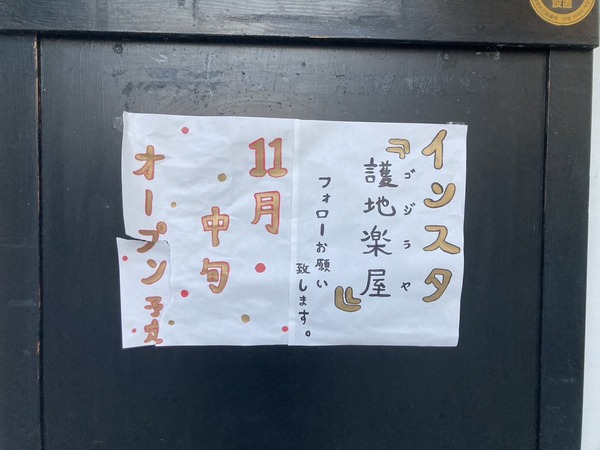 インスタ
『護地楽屋』
ゴジラヤ
フォローお願い
致します。
11月
中旬
オープン予定
設置